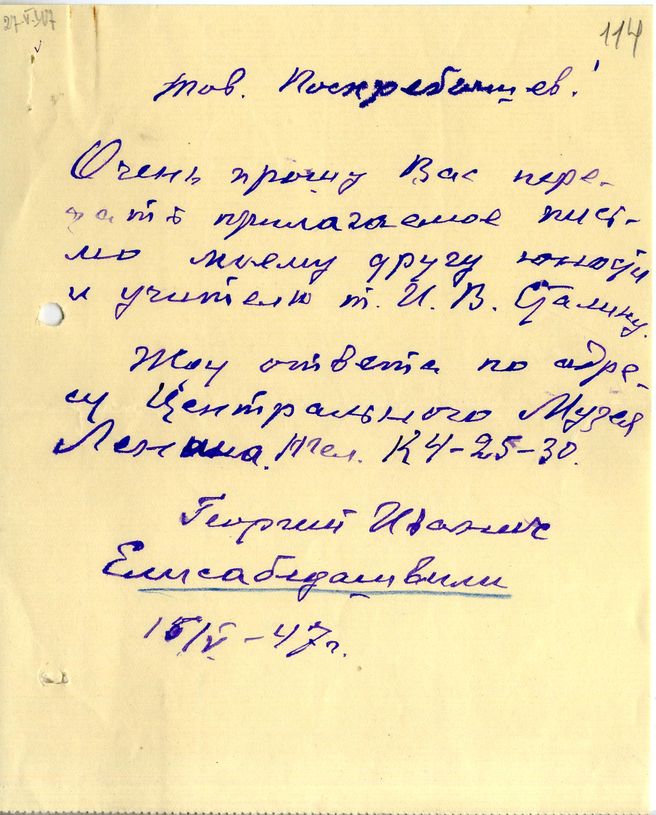 27.V.47
114
тов. Поскребышев!
Очень прошу Вас пере-
дать прилагаемое пись-
мо моему другу юности
и учителю т. И. В. Сталину.
Жду ответа по адре-
су Центрального Музея
Ленина. Тел. К4-25-30.
Георгий Иванич
Елисабедашвили
15/V-47г.